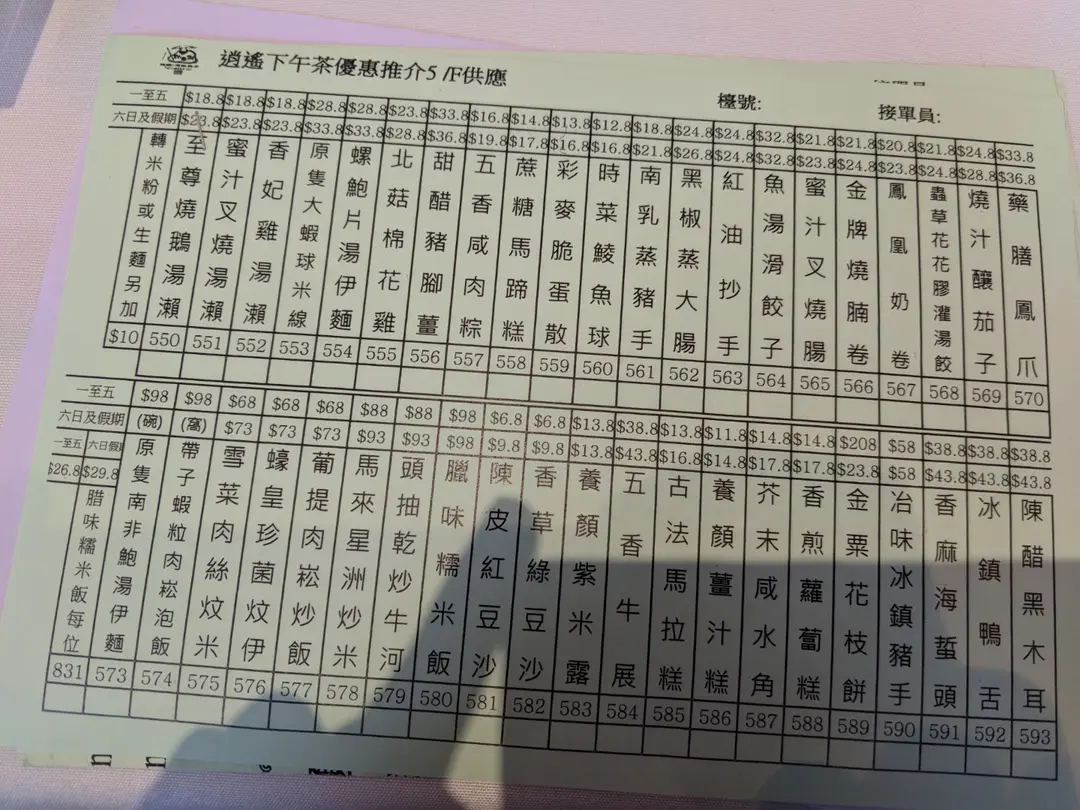 逍遙下午茶優惠推介5 /F供應
檯號:
接單員:
一至五 $18.8 $18.8 $18.8 $28.8 $28.8 $23.8 $33.8 $16.8 $14.8 $13.8 $12.8 $18.8 $24.8 $24.8 $32.8 $21.8 $21.8 $20.8 $21.8 $24.8 $33.8
六日及假期 $23.8 $23.8 $23.8 $33.8 $33.8 $28.8 $36.8 $19.8 $17.8 $16.8 $16.8 $21.8 $26.8 $24.8 $32.8 $23.8 $24.8 $23.8 $24.8 $28.8 $36.8
轉米粉或生麵另加
至尊燒鵝湯瀨
蜜汁叉燒湯瀨
香妃雞湯瀨
原隻大蝦球米線
螺鮑片湯伊麵
北菇棉花雞
甜醋豬腳薑
五香咸肉粽
蔗糖馬蹄糕
彩麥脆蛋散
時菜鯪魚球
南乳蒸豬手
黑椒蒸大腸
紅油抄手
魚湯滑餃子
蜜汁叉燒腸
金牌燒腩卷
鳳凰奶卷
蟲草花花膠灌湯餃
燒汁釀茄子
藥膳鳳爪
$10 550 551 552 553 554 555 556 557 558 559 560 561 562 563 564 565 566 567 568 569 570
一至五 $98 $98 $68 $68 $68 $88 $88 $98 $6.8 $6.8 $13.8 $38.8 $13.8 $11.8 $14.8 $14.8 $208 $58 $38.8 $38.8 $38.8
六日及假期 (碗) (窩) $73 $73 $73 $93 $93 $98 $9.8 $9.8 $13.8 $43.8 $16.8 $14.8 $17.8 $17.8 $23.8 $58 $43.8 $43.8 $43.8
一至五 六日假期
$26.8 $29.8
腊味糯米飯每位
原隻南非鮑湯伊麵
帶子蝦粒肉崧泡飯
雪菜肉絲炆米
蠔皇珍菌炆伊
葡提肉崧炒飯
馬來星洲炒米
頭抽乾炒牛河
臘味糯米飯
陳皮紅豆沙
香草綠豆沙
養顏紫米露
五香牛展
古法馬拉糕
養顏薑汁糕
芥末咸水角
香煎蘿蔔糕
金粟花枝餅
冶味冰鎮豬手
香麻海蜇頭
冰鎮鴨舌
陳醋黑木耳
831 573 574 575 576 577 578 579 580 581 582 583 584 585 586 587 588 589 590 591 592 593